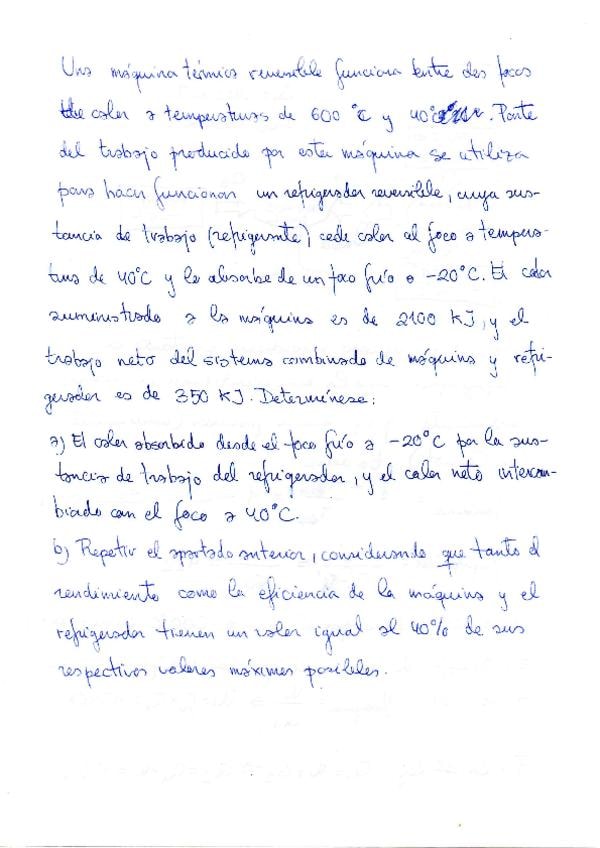 Una máquina térmica reversible funciona entre dos focos
de calor a temperaturas de 600 °C y 40°C. Parte
del trabajo producido por esta máquina se utiliza
para hacer funcionar un refrigerador reversible, cuya sus-
tancia de trabajo (refrigerante) cede calor al foco a tempera-
tura de 40°C y lo absorbe de un foco frío a -20°C. El calor
suministrado a la máquina es de 2100 KJ, y el
trabajo neto del sistema combinado de máquina y refri-
gerador es de 350 KJ. Determínese:
a) El calor absorbido desde el foco frío a -20°C por la sus-
tancia de trabajo del refrigerador, y el calor neto intercam-
biado con el foco a 40°C.
b) Repetir el apartado anterior, considerando que tanto el
rendimiento como la eficiencia de la máquina y el
refrigerador tienen un valor igual al 40% de sus
respectivos valores máximos posibles.